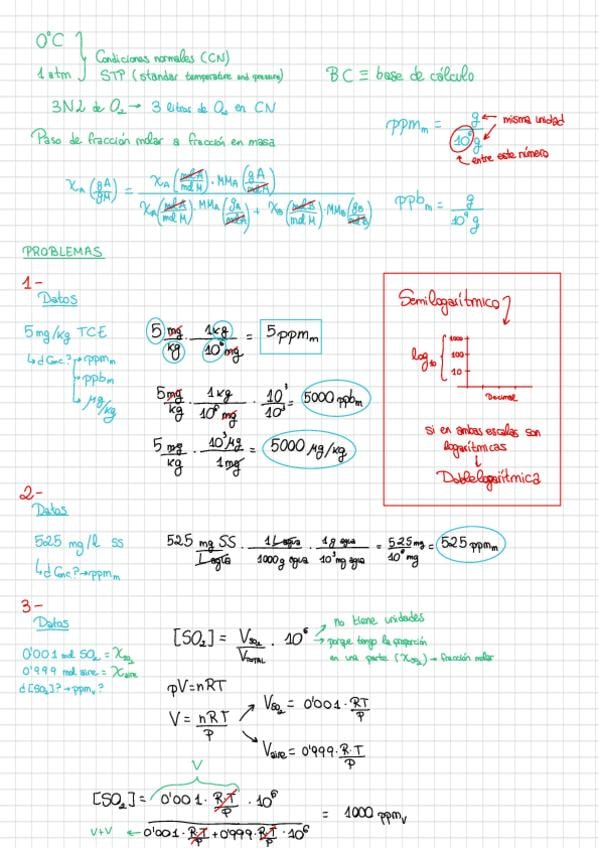 0°C
1 atm
Condiciones normales (CN)
STP (standar temperature and pressure)
BC ≡ base de cálculo
3N2 de O₂ → 3 litros de O₂ en CN
ppm_m = g / 10⁶ g
misma unidad
entre este número
Paso de fracción molar a fracción en masa
X_A (gA/gM) = X_A (mol A/mol M) · MM_A (gA/mol A) / X_A (mol A/mol M) · MM_A (gA/mol A) + X_B (mol B/mol M) · MM_B (gB/mol B)
ppb_m = g / 10⁹ g
PROBLEMAS
1-
Datos
5 mg/kg TCE
↳ d Conc.? → ppm_m
→ ppb_m
→ μg/kg
5 mg/kg · 1kg/10⁶ mg = 5 ppm_m
5 mg/kg · 1kg/10⁶ mg · 10³/10³ = 5000 ppb_m
5 mg/kg · 10³ μg/1 mg = 5000 μg/kg
Semilogarítmico
log₁₀
1000
100
10
Decimal
si en ambas escalas son
logarítmicas
↓
Doble logarítmica
2-
Datos
525 mg/l SS
↳ d Conc.? → ppm_m
525 mg SS/L agua · 1 L agua/1000 g agua · 1 g agua/10³ mg agua = 525 mg/10⁶ mg = 525 ppm_m
3-
Datos
0'001 mol SO₂ = X_SO₂
0'999 mol aire = X_aire
d [SO₂]? → ppm_v?
[SO₂] = V_SO₂/V_TOTAL · 10⁶
no tiene unidades
porque tengo la proporción
en una parte (X_SO₂) → fracción molar
pV = nRT
V = nRT/P
V_SO₂ = 0'001 · RT/P
V_aire = 0'999 · R·T/P
V
[SO₂] = 0'001 · R·T/P · 10⁶ / 0'001 · R·T/P + 0'999 · R·T/P · 10⁶ = 1000 ppm_v
V+V ←